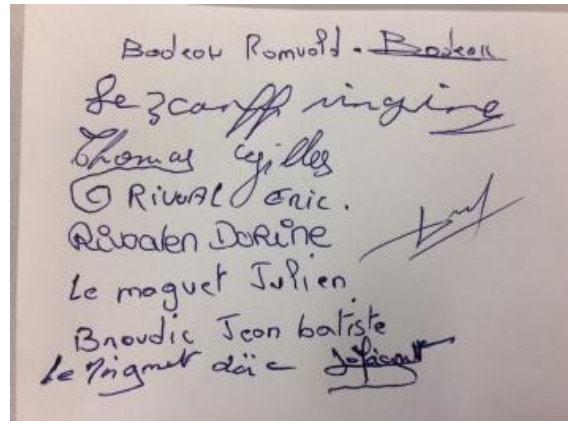 Badeou Romuald. Badeou
Le Scanff virginie
Thomas Gilles
RIVOAL Eric.
Rivoalen DORINE
Le moguet Julien
Broudic Jean batiste
Le Mignet